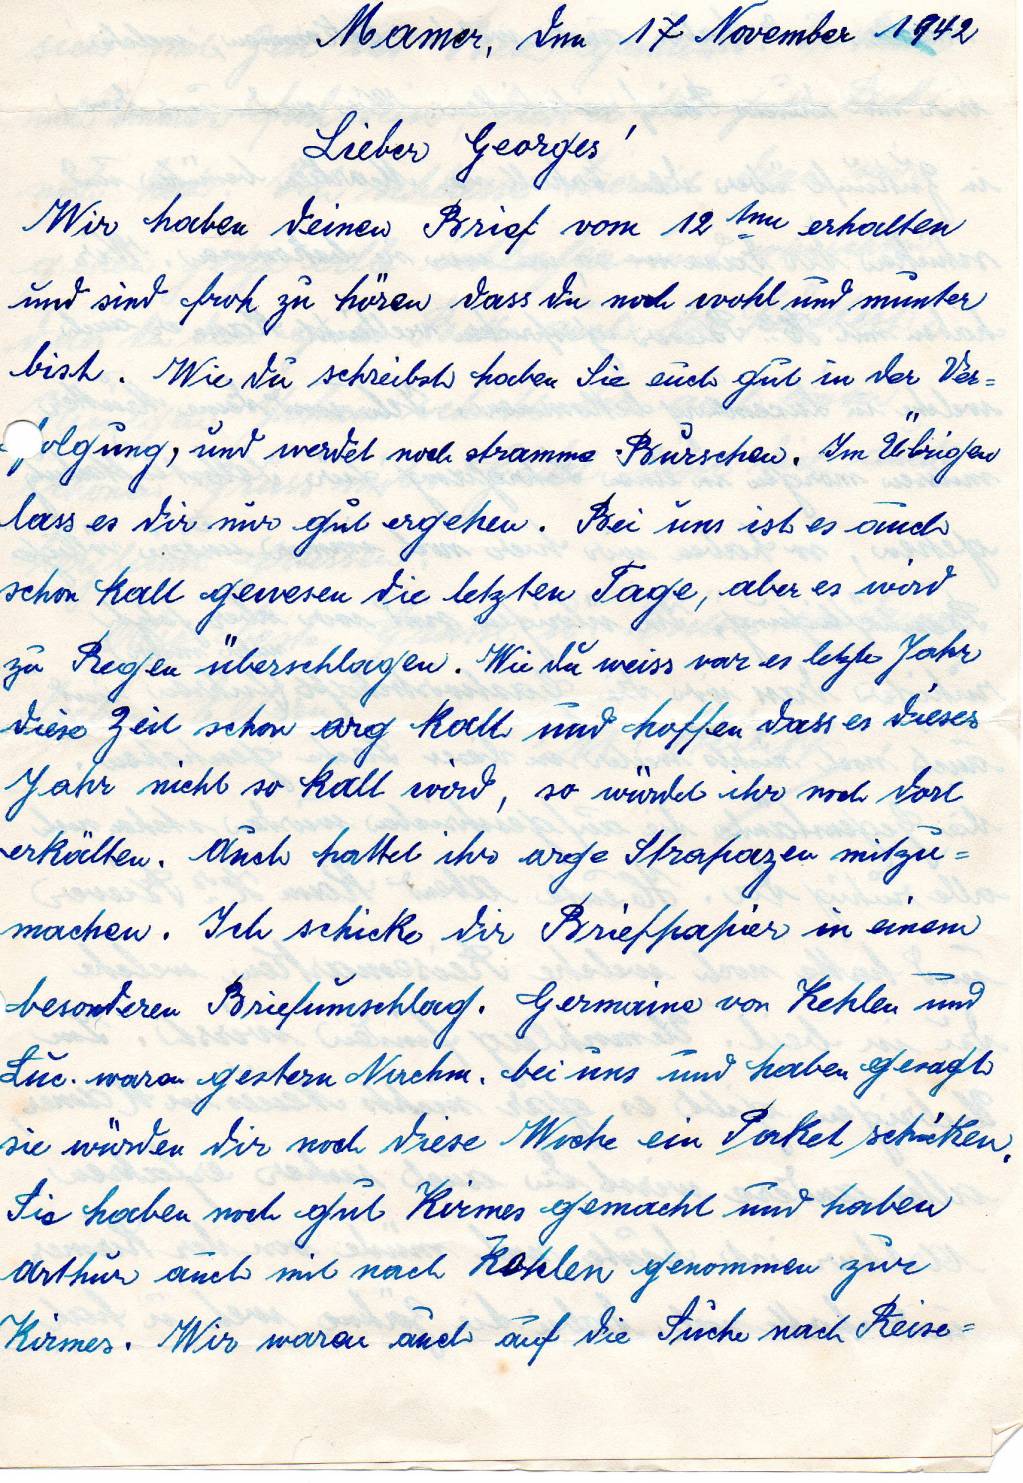 Mamer, den 17 November 1942
Lieber Georges!
Wir haben deinen Brief vom 12 ten erhalten
und sind froh zu hören dass du noch wohl und munter
bist. Wie du schreibst haben Sie euch gut in der Ver=
folgung, und werdet noch stramme Burschen. Im Übrigen
lass es dir nur gut ergehen. Bei uns ist es auch
schon kalt gewesen die letzten Tage, aber es wird
zu Regen überschlagen. Wie du weiss war es letzte Jahr
diese Zeit schon arg kalt und hoffen dass es dieses
Jahr nicht so kalt wird, so würdet ihr noch dort
erkälten. Auch hattet ihr arge Strapazen mitzu=
machen. Ich schicke dir Briefpapier in einem
besonderen Briefumschlag. Germaine von Kehlen und
Luc. waren gestern Nachm. bei uns und haben gesagt
sie würden dir noch diese Woche ein Paket schicken.
Sie haben noch gut Kirmes gemacht und haben
Arthur auch mit nach Kehlen genommen zur
Kirmes. Wir waren auch auf die Suche nach Reise=